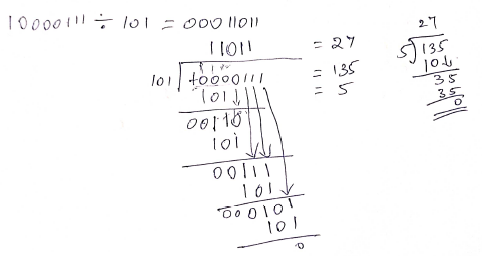 10000111 ÷ 101 = 00011011
11011 = 27
101 10000111 = 135
101 = 5
00110
101
00111
101
000101
101
0
27
5 135
10
35
35
0